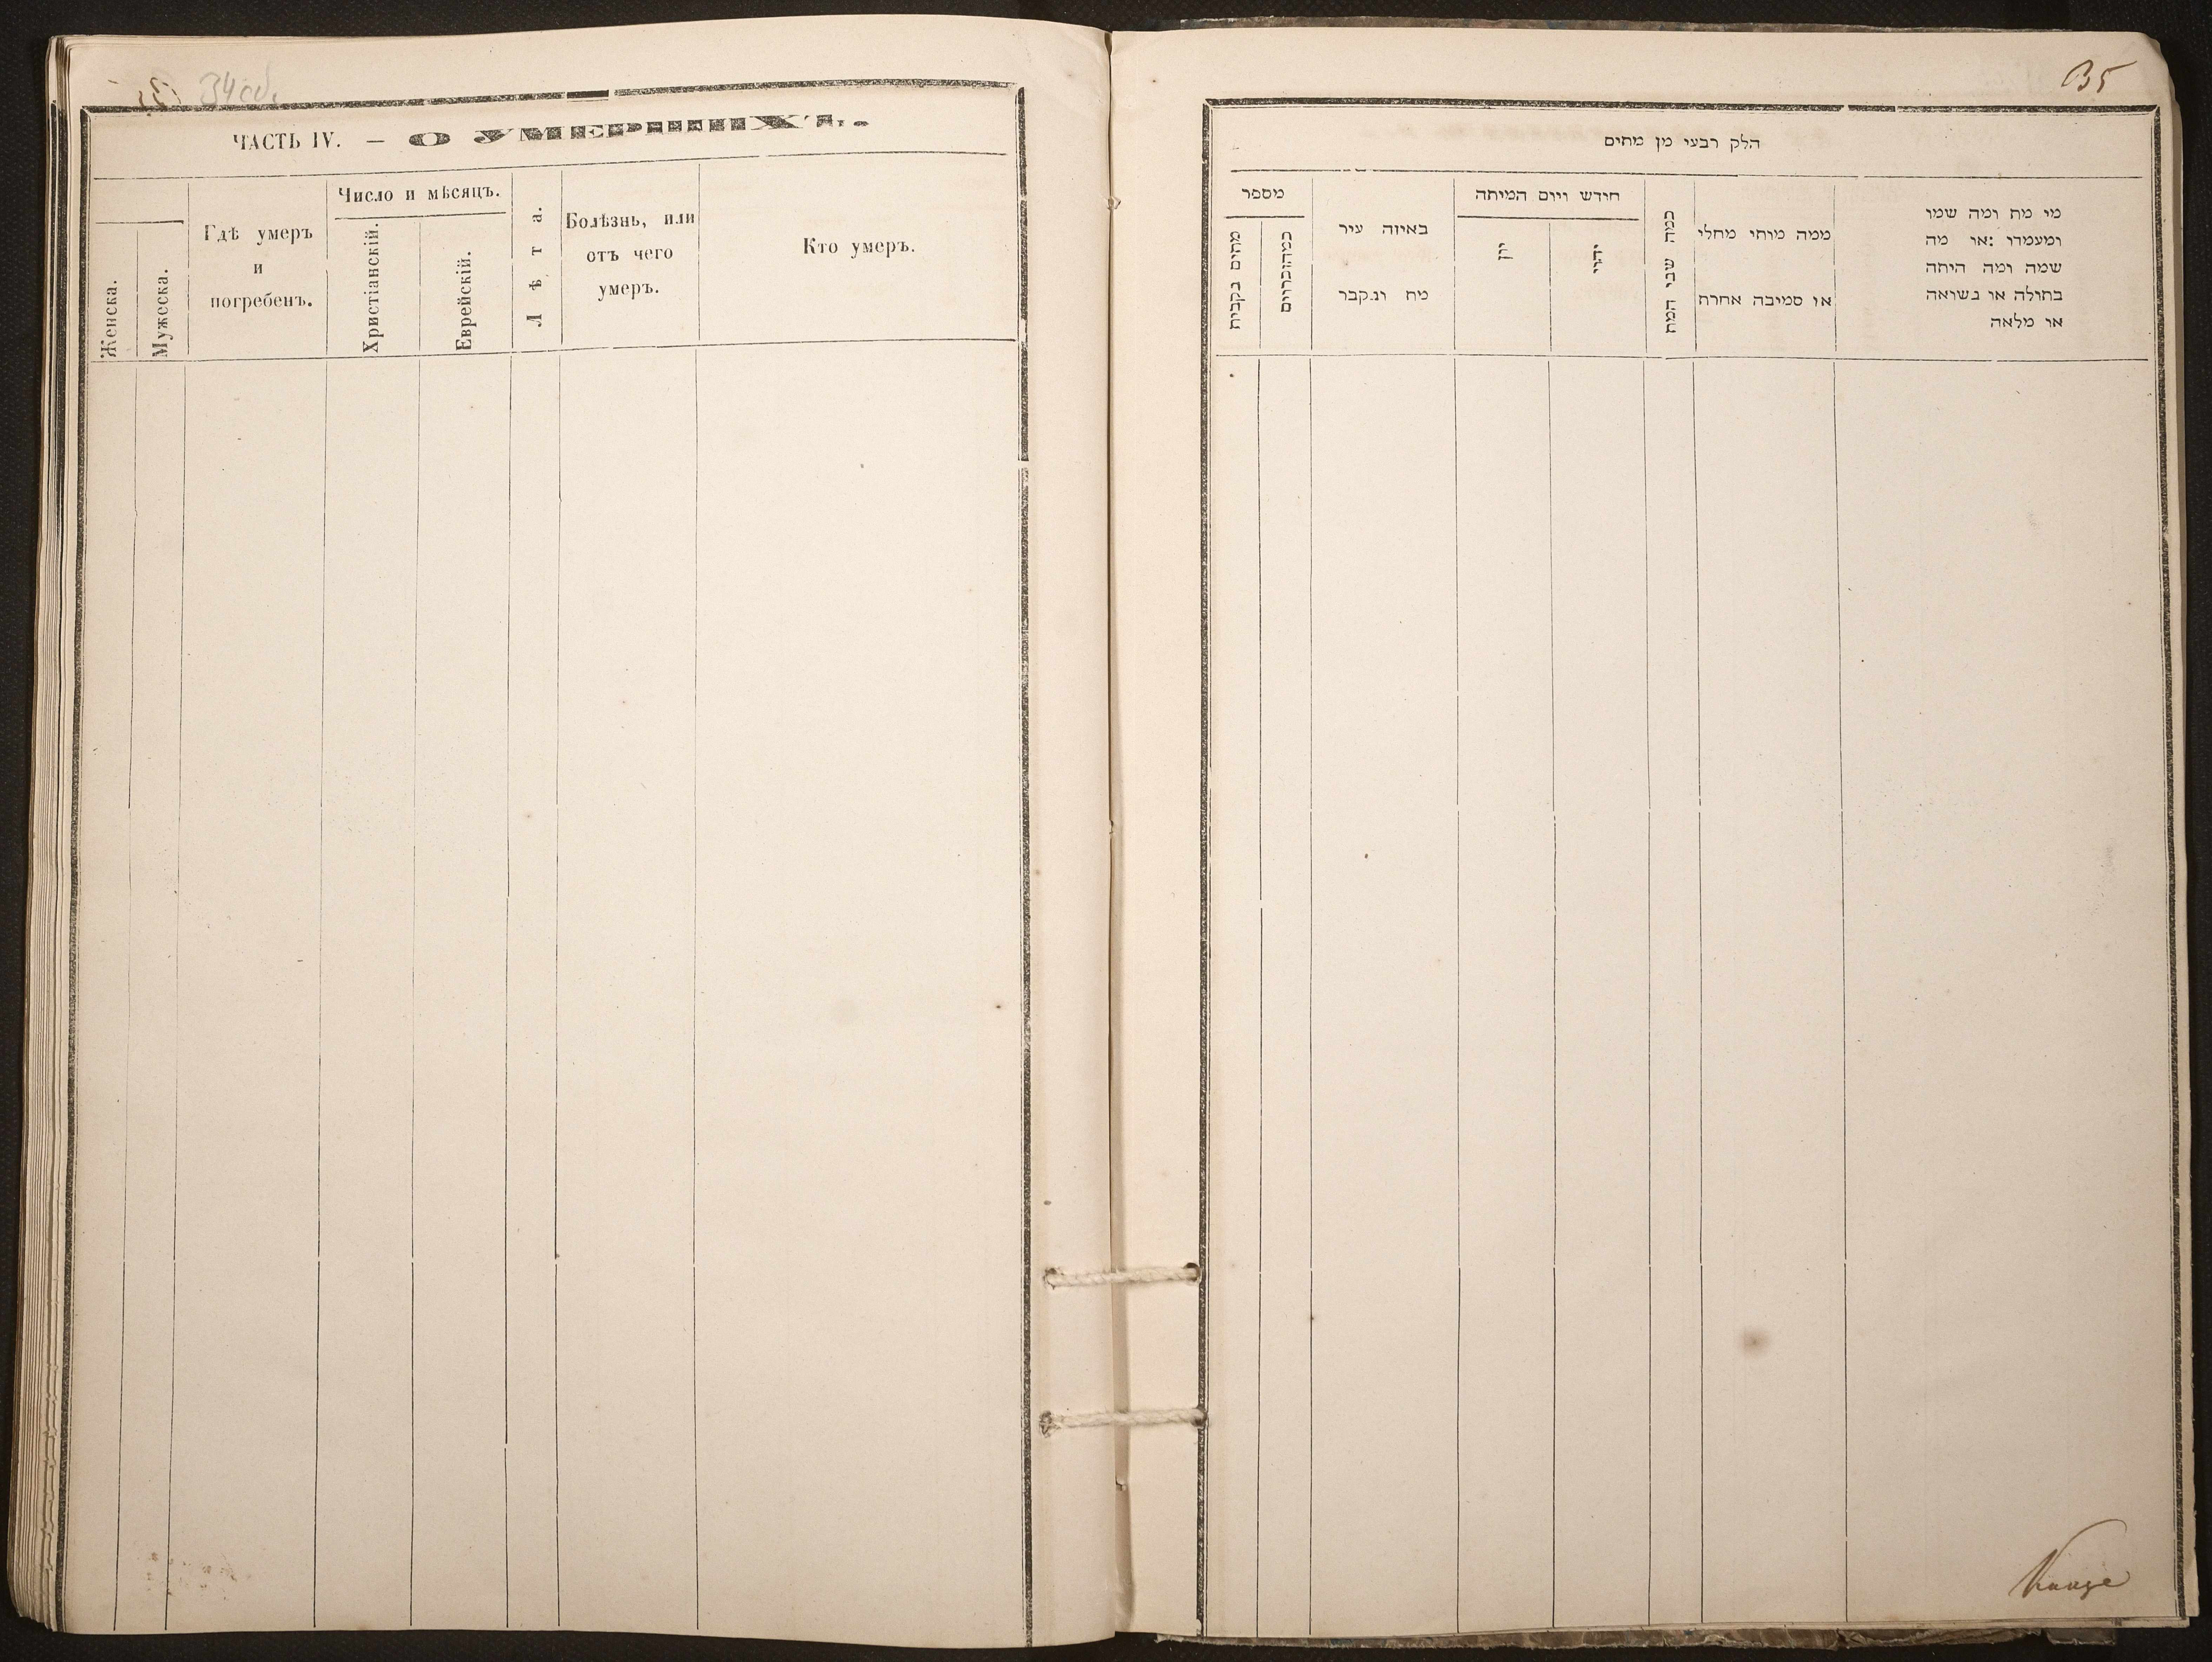 34 об.
ЧАСТЬ IV. — О УМЕРШИХЪ.
Женска.
Мужеска.
Гдѣ умеръ
и
погребенъ.
Число и мѣсяцъ.
Христіанскій.
Еврейскій.
Лѣта.
Болѣзнь, или
отъ чего
умеръ.
Кто умеръ.
35
הלק רבעי מן מתים
מספר
באיזה עיר
מת ונקבר
חודש ויום המיתה
כמה שני המת
ממה מותי מחלי
או סמיבה אחרת
מי מת ומה שמו
ומעמדו :או מה
שמה ומה היתה
בתולה או נשואה
או מלאה